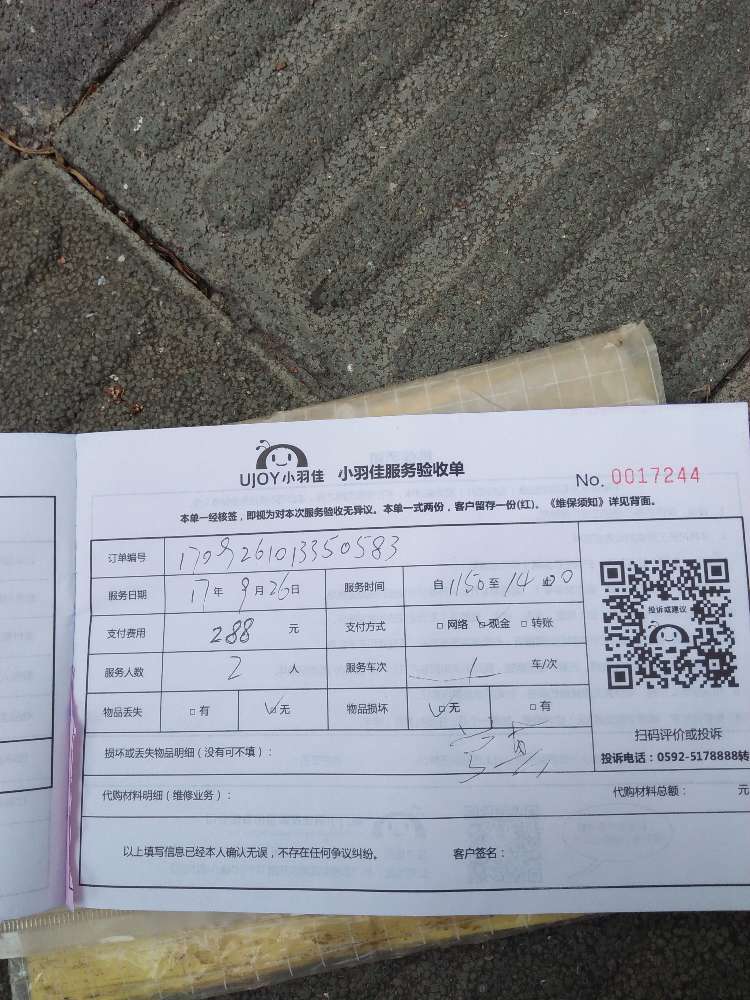 UJOY小羽佳 小羽佳服务验收单 No. 0017244
本单一经核签，即视为对本次服务验收无异议。本单一式两份，客户留存一份(红)。《维保须知》详见背面。
订单编号 1709261013350583
服务日期 17年9月26日 服务时间 自1150至14
支付费用 288 元 支付方式 □网络 ☑现金 □转账
服务人数 2 人 服务车次 1 车/次
物品丢失 □有 ☑无 物品损坏 ☑无 □有
投诉或建议
扫码评价或投诉
投诉电话：0592-5178888转
损坏或丢失物品明细（没有可不填）：
代购材料明细（维修业务）： 代购材料总额： 元
以上填写信息已经本人确认无误，不存在任何争议纠纷。 客户签名：